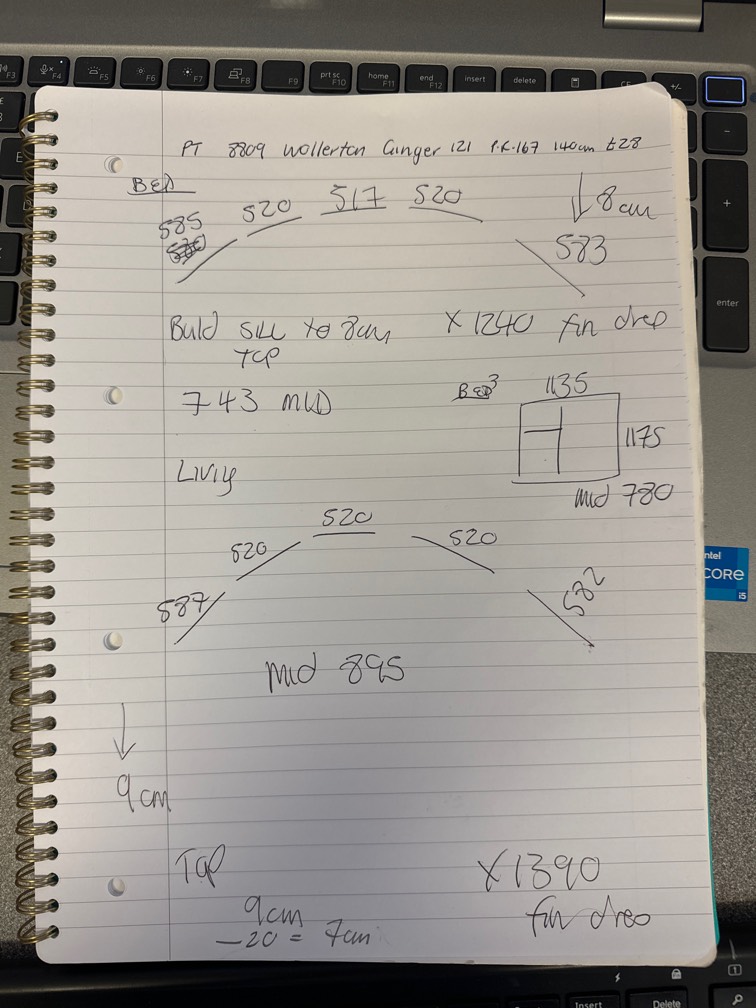 PT 8809 Wollerton Ginger 121 P.R.167 140cm £28
BED
585 520 517 520 583
8cm
Buld SILL to 8cm X 1240 fin drop
TOP
743 MID
BED 3 1135
1175
mid 780
Livig
587 520 520 520 582
mid 895
9cm
TOP X1390
fin drop
9cm
-20 = 7cm
F3 F4 F5 F6 F7 F8 F9 prt sc F10 home F11 end F12 insert delete
enter
intel
CORE
i5
Insert Delete